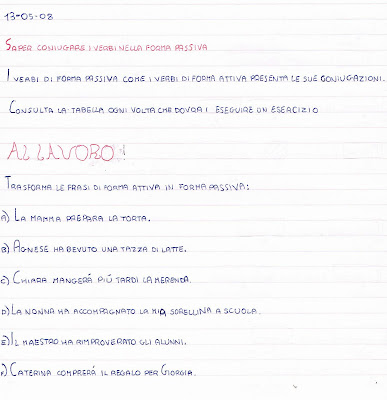 13-05-08
SAPER CONIUGARE I VERBI NELLA FORMA PASSIVA
I VERBI DI FORMA PASSIVA COME I VERBI DI FORMA ATTIVA PRESENTA LE SUE CONIUGAZIONI.
CONSULTA LA TABELLA OGNI VOLTA CHE DOVRAI ESEGUIRE UN ESERCIZIO
AL LAVORO!
TRASFORMA LE FRASI DI FORMA ATTIVA IN FORMA PASSIVA:
A) LA MAMMA PREPARA LA TORTA.
B) AGNESE HA BEVUTO UNA TAZZA DI LATTE.
C) CHIARA MANGERÁ PIÚ TARDI LA MERENDA.
D) LA NONNA HA ACCOMPAGNATO LA MIA SORELLINA A SCUOLA.
E) IL MAESTRO HA RIMPROVERATO GLI ALUNNI.
F) CATERINA COMPRERÁ IL REGALO PER GIORGIA.